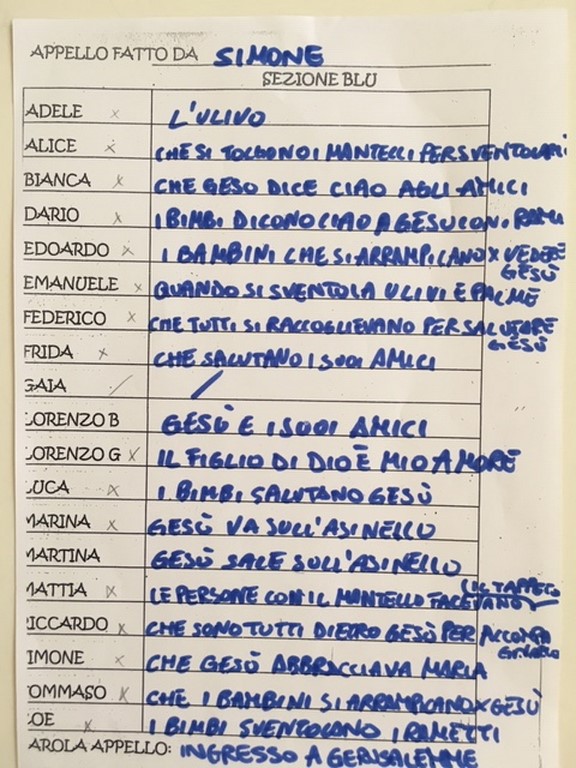 APPELLO FATTO DA SIMONE
SEZIONE BLU
ADELE x L'ULIVO
ALICE x CHE SI TOLGONO I MANTELLI PER SVENTOLARLI
BIANCA x CHE GESÙ DICE CIAO AGLI AMICI
DARIO x I BIMBI DICONO CIAO A GESÙ CON I RAMI
EDOARDO x I BAMBINI CHE SI ARRAMPICANO X VEDERE
GESÙ
EMANUELE x QUANDO SI SVENTOLA ULIVI E PALME
FEDERICO x CHE TUTTI SI RACCOGLIEVANO PER SALUTARE
GESÙ
FRIDA x CHE SALUTANO I SUOI AMICI
GAIA / /
LORENZO B GESÙ E I SUOI AMICI
LORENZO G x IL FIGLIO DI DIO È MIO AMORE
LUCA x I BIMBI SALUTANO GESÙ
MARINA x GESÙ VA SULL'ASINELLO
MARTINA GESÙ SALE SULL'ASINELLO
UN TAPPETO
MATTIA x LE PERSONE CON IL MANTELLO FACEVANO
RICCARDO x CHE SONO TUTTI DIETRO GESÙ PER ACCOMPA
GNARLO
SIMONE x CHE GESÙ ABBRACCIAVA MARIA
TOMMASO x CHE I BAMBINI SI ARRAMPICANO X GESÙ
ZOE x I BIMBI SVENTOLANO I RAMETTI
PAROLA APPELLO: INGRESSO A GERUSALEMME